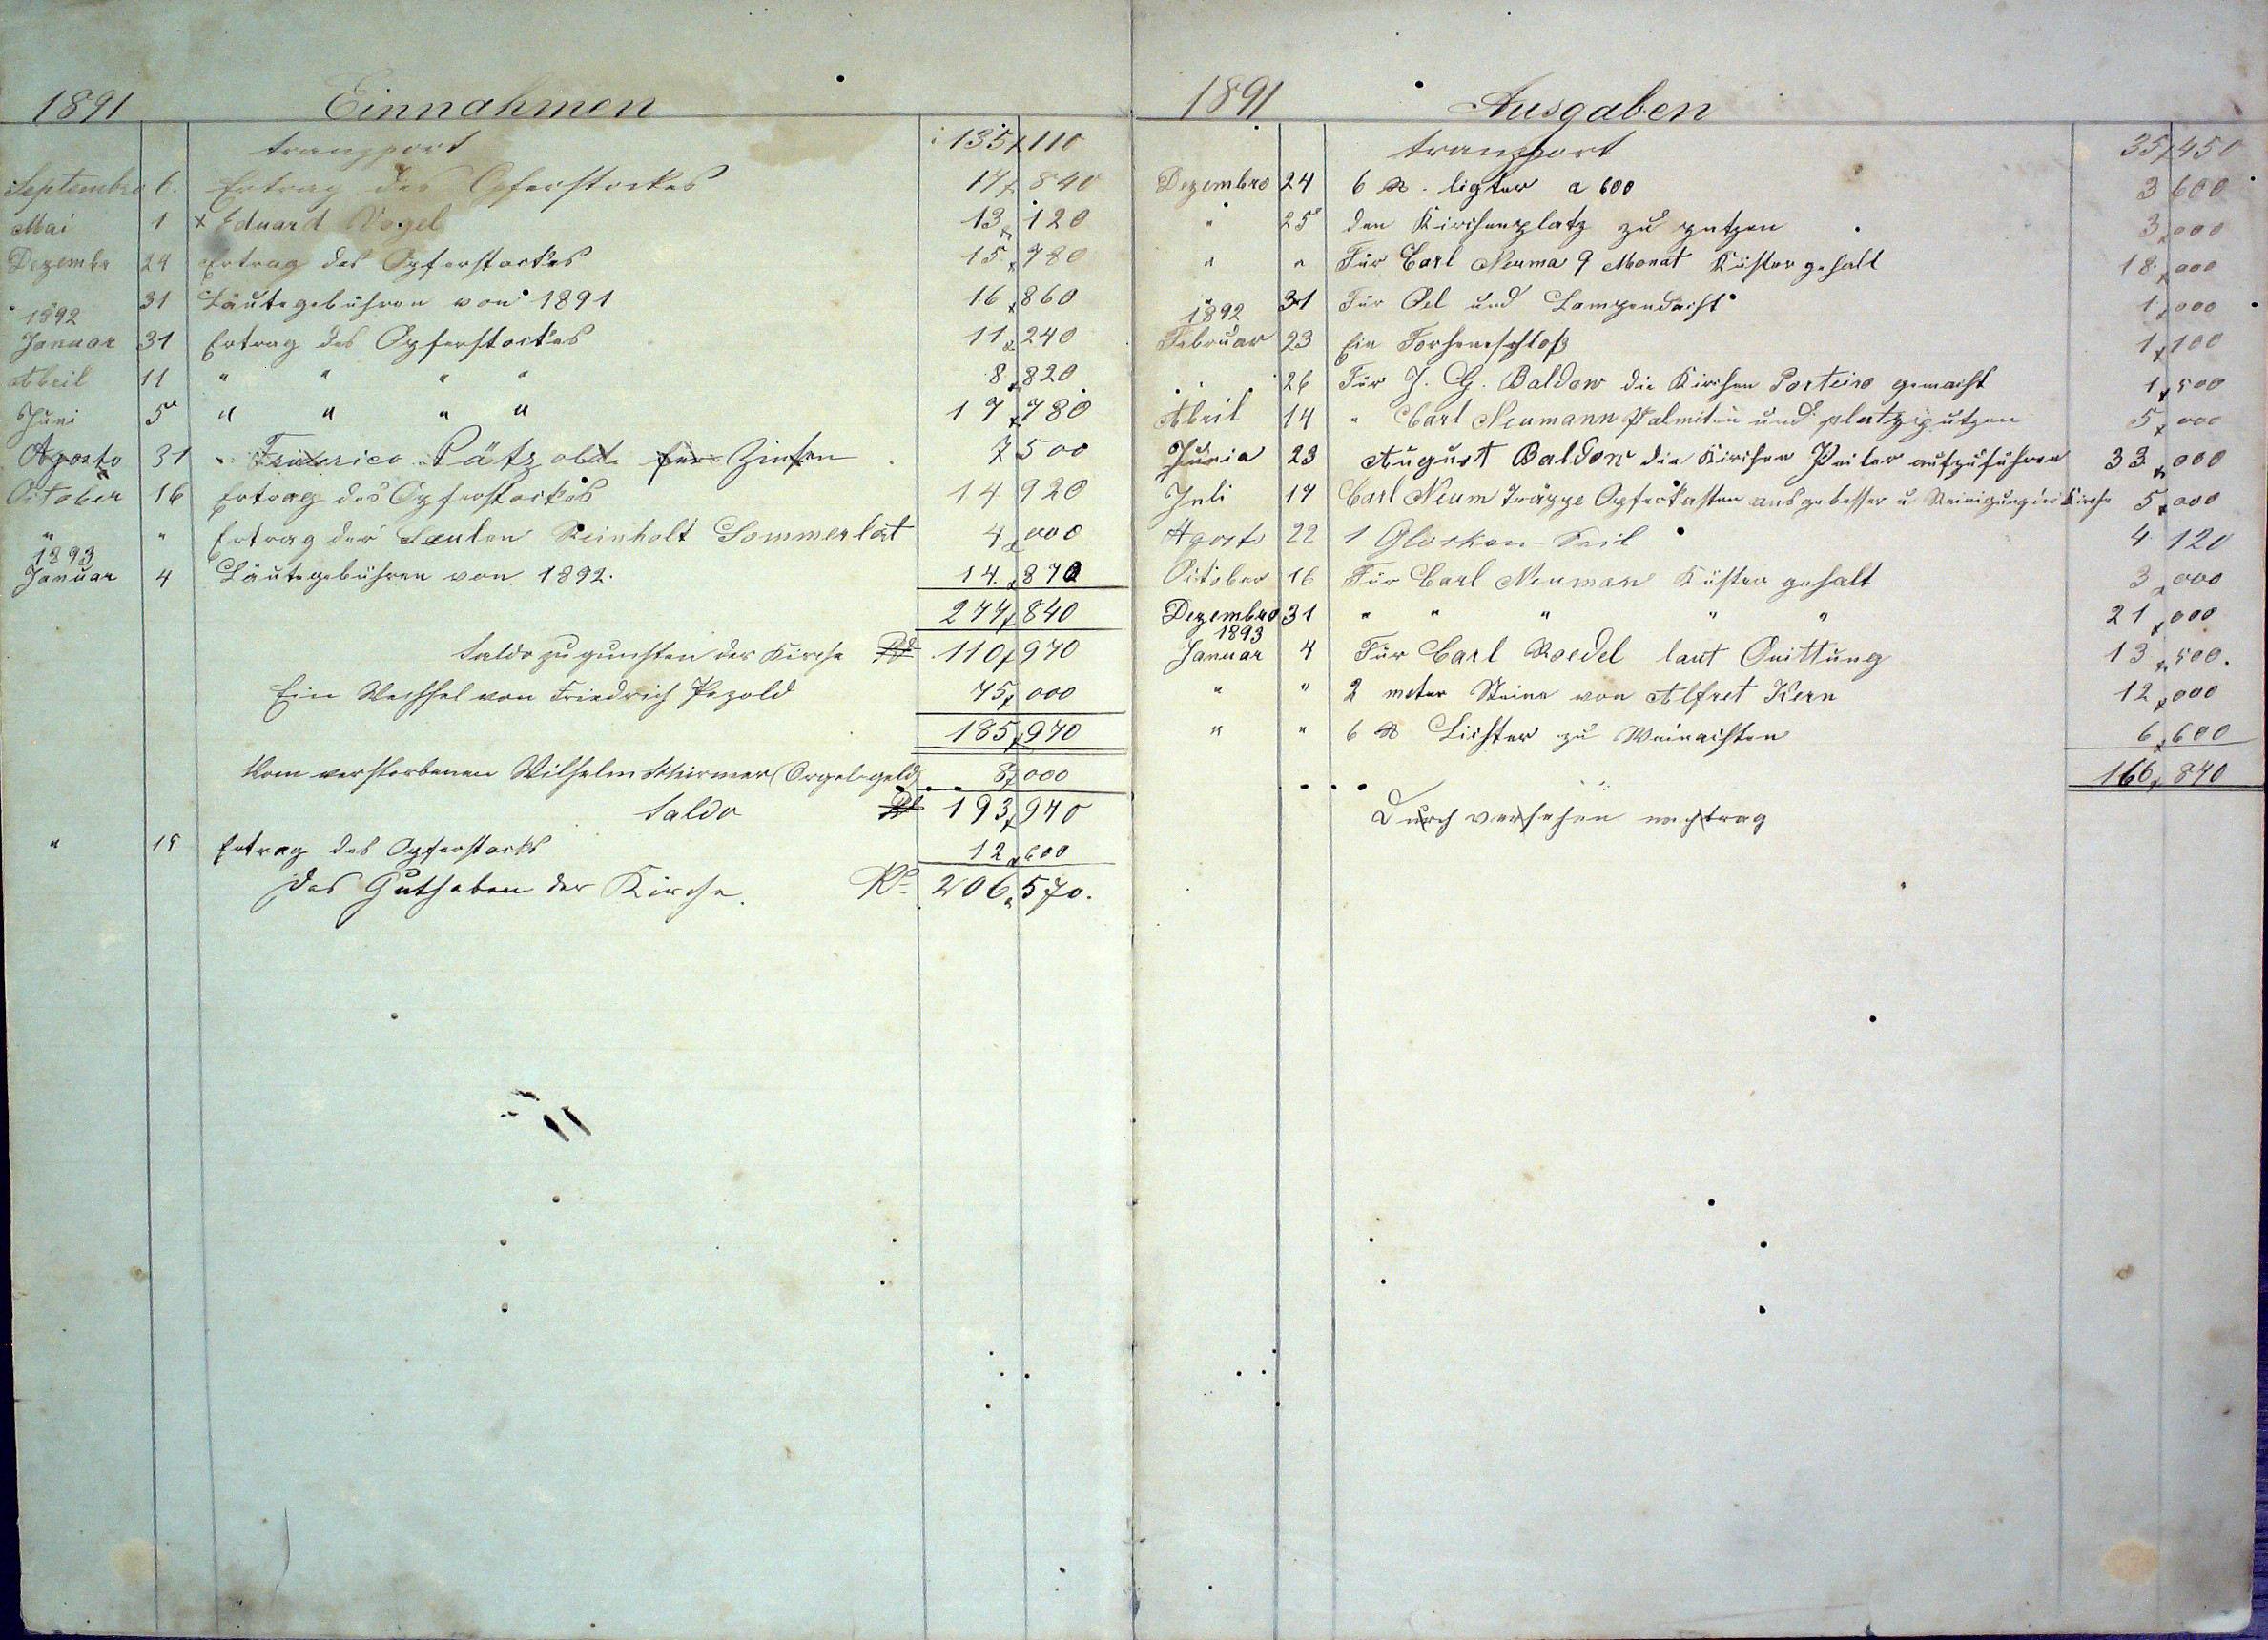 1891 Einnahmen
transport 135$110
Septembro 6. Ertrag des Opferstockes 17$840
Mai 1 x Eduard Vogel 13$120
Dezembr 24 Ertrag des Opferstockes 15$780
" 31 Läutegebühren von 1891 16$860
1892
Januar 31 Ertrag des Opferstockes 11$240
Abril 11 " " " " 8$820
Juni 5 " " " " 17$780
Agosto 31 Frederico Pätzoldt für Zinsen 7 500
October 16 Ertrag des Opferstockes 14 920
" " Ertrag der Leuten Reinholt Sommerlat 4$000
1893
Januar 4 Läutegebühren von 1892. 14$870
277$840
Saldo zu gunsten der Kirche Rs 110$970
Ein Wechsel von Friedrich Pezold 75$000
185$970
Vom verstorbenen Wilhelm Schürmer (Orgelgeld) 8$000
Saldo Rs 193$970
" 15 Ertrag des Opferstocks 12$600
Das Guthaben der Kirche. Rs 206$570.
1891 Ausgaben
transport 35$450
Dezembro 24 6 ℔. ligter a 600 3 600
" 25 den Kirchenplatz zu putzen 3$000
" " Für Carl Neuma 9 Monat Küster gehalt 18$000
" 31 Für Oel und Lampendocht 1$000
1892
Februar 23 Ein Vorheneschloß 1$100
" 26 Für J. G. Baldow die Kirchen Porteiro gemacht 1$500
Abril 14 " Carl Neumann Palmiten und platz putzen 5$000
Junia 23 August Baldow die Kirchen Pfeiler aufzuführen 33$000
Juli 17 Carl Neum Träppe Opferkasten ausgebesser u Reinigung der Kirche 5$000
Agosto 22 1 Glocken-Seil 4 120
October 16 Für Carl Neuman Küster gehalt 3$000
Dezembro 31 " " " " " 21$000
1893
Januar 4 Für Carl Roedel laut Quittung 13$500.
" " 2 meter Steine von Alfret Kern 12$000
" " 6 ℔ Lichter zu Weinachten 6$600
166$870
Durch versehen nachtrag